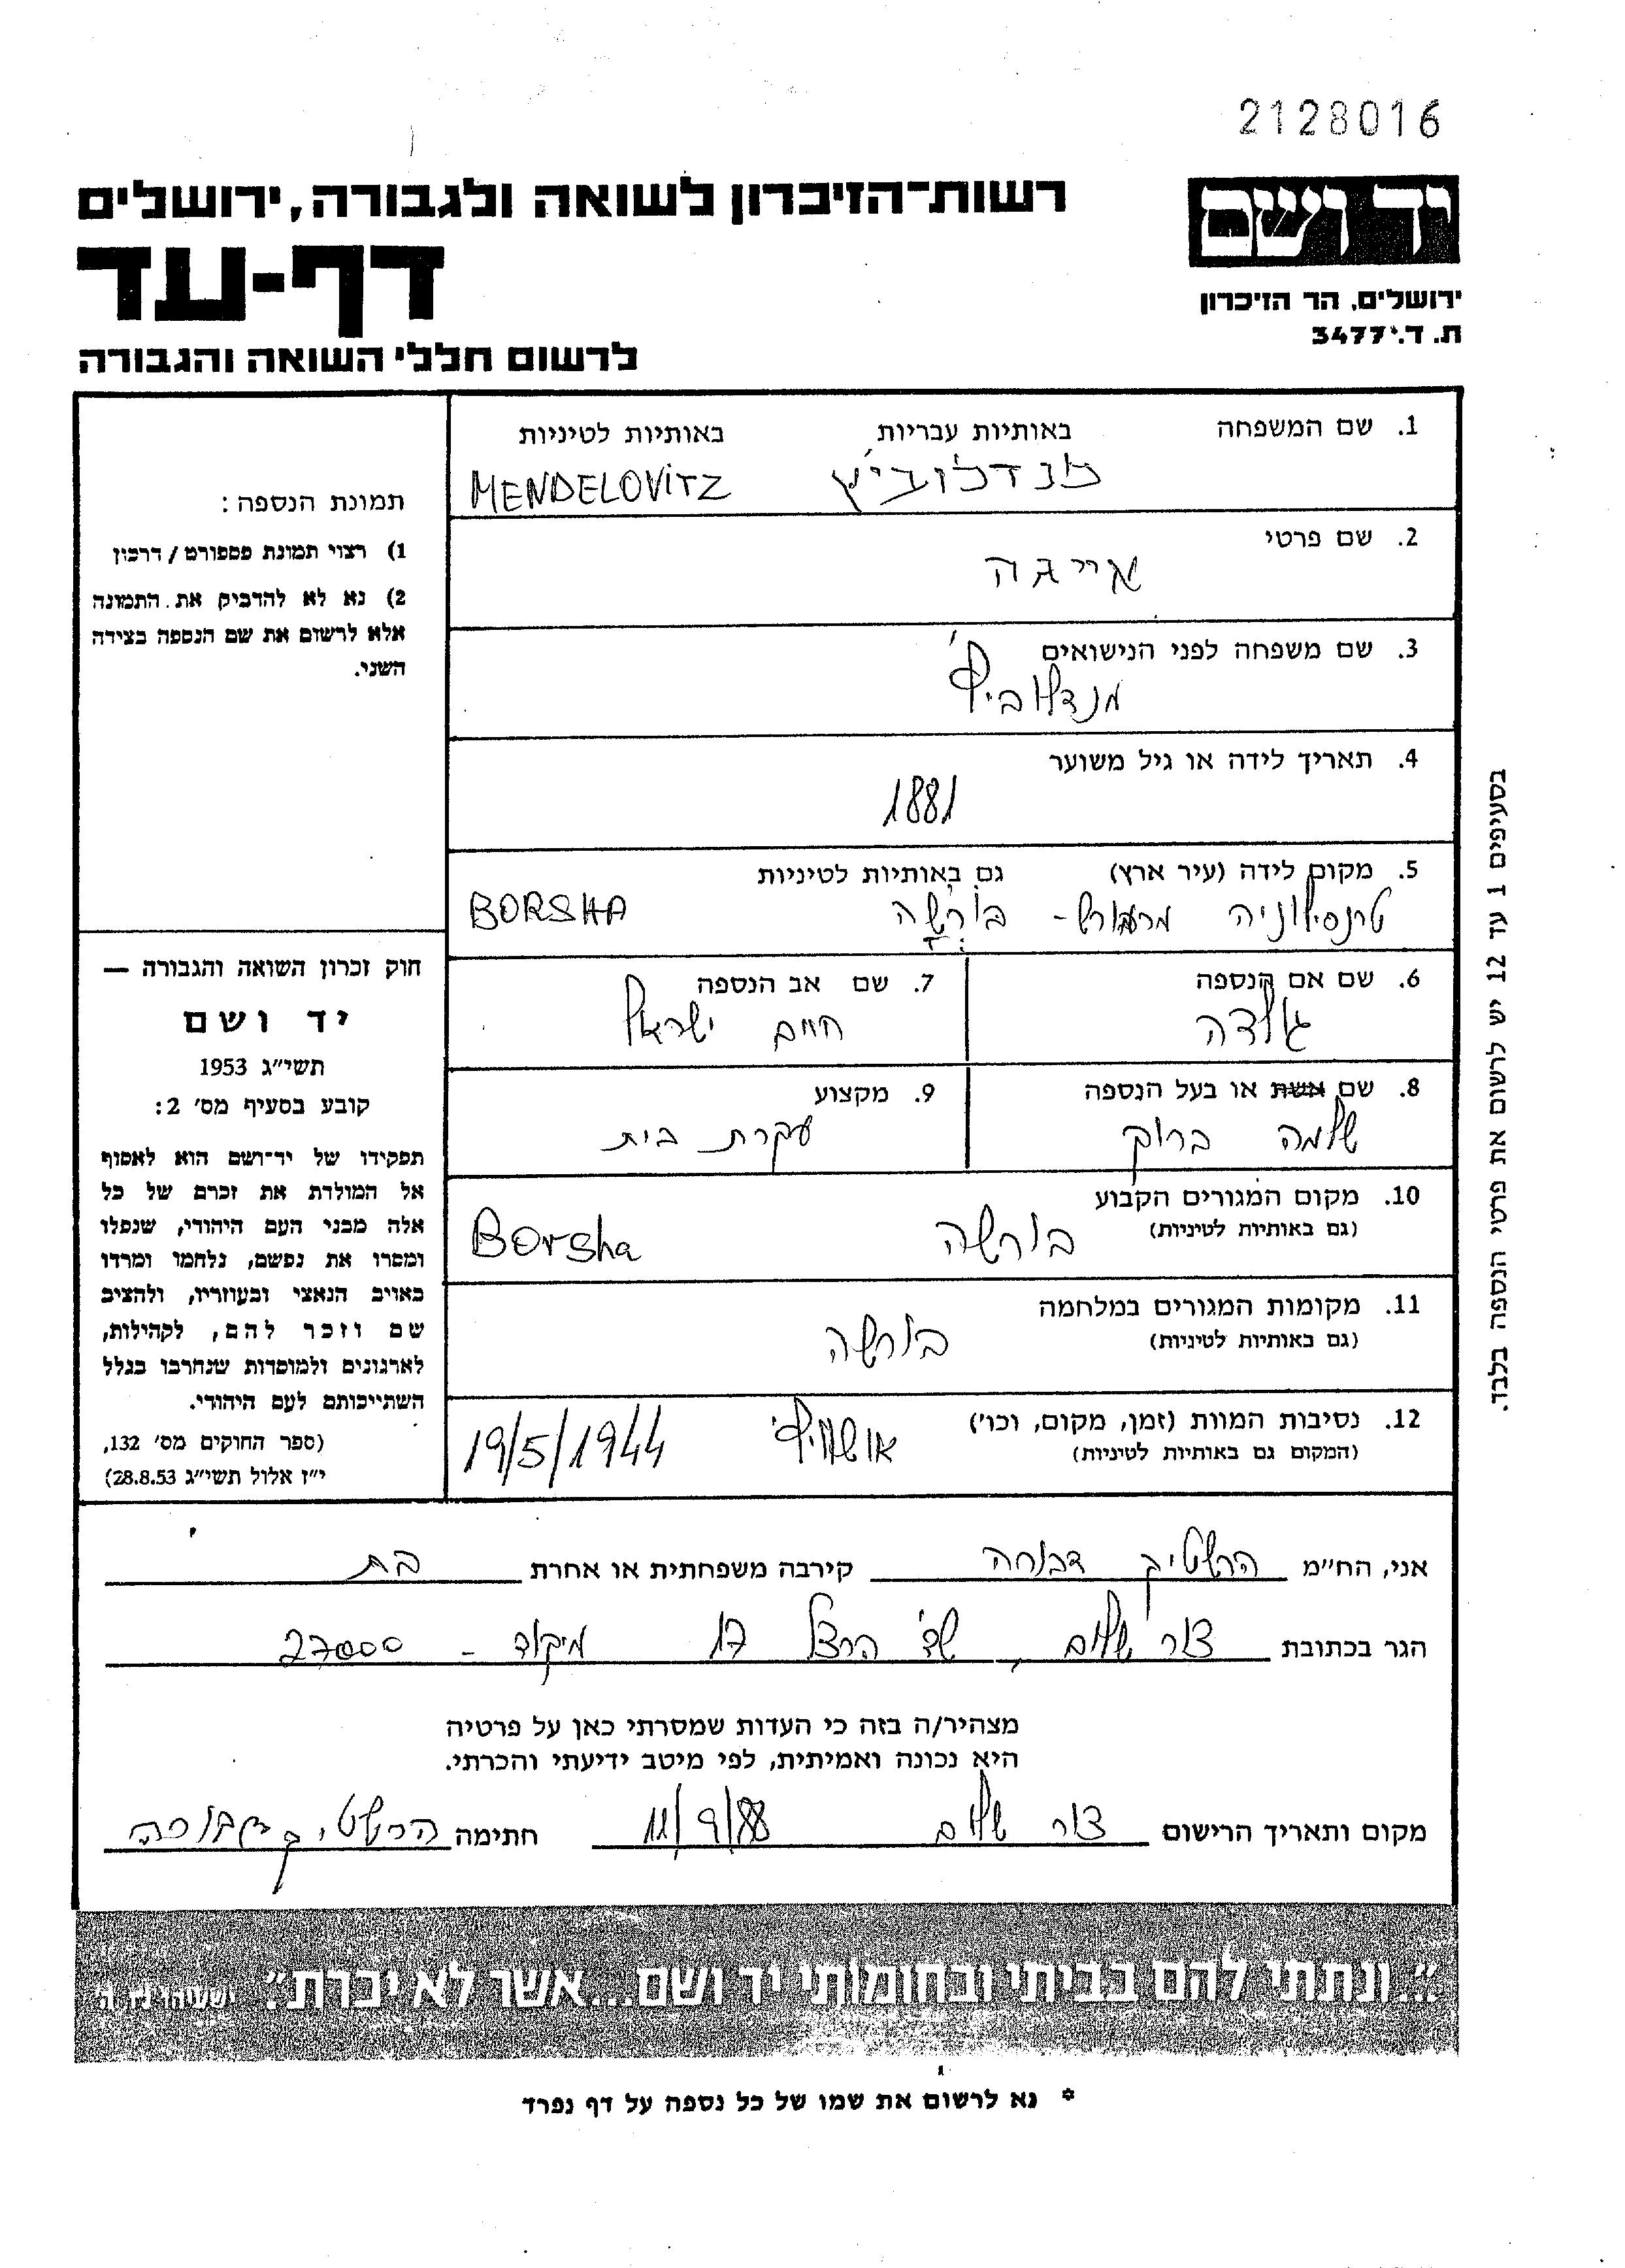 2128016
יד ושם
ירושלים, הר הזיכרון
ת. ד. 3477
רשות־הזיכרון לשואה ולגבורה, ירושלים
דף-עד
לרשום חללי השואה והגבורה
1. שם המשפחה באותיות עבריות באותיות לטיניות
מנדלוביץ' MENDELOVITZ
2. שם פרטי
אייגה
3. שם משפחה לפני הנישואים
מנדלוביץ'
4. תאריך לידה או גיל משוער
1881
5. מקום לידה (עיר ארץ) גם באותיות לטיניות
טרנסילוניה מרמורש - בורשה BORSHA
6. שם אם הנספה
גולדה
7. שם אב הנספה
חיים ישראל
8. שם אשת או בעל הנספה
שלמה ברוך
9. מקצוע
עקרת בית
10. מקום המגורים הקבוע
(גם באותיות לטיניות)
בורשה Borsha
11. מקומות המגורים במלחמה
(גם באותיות לטיניות)
בורשה
12. נסיבות המוות (זמן, מקום, וכו')
(המקום גם באותיות לטיניות)
אושוויץ' 19/5/1944
תמונת הנספה:
1) רצוי תמונת פספורט/דרכון
2) נא לא להדביק את התמונה
אלא לרשום את שם הנספה בצידה
השני.
חוק זכרון השואה והגבורה —
יד ושם
תשי״ג 1953
קובע בסעיף מס' 2:
תפקידו של יד־ושם הוא לאסוף
אל המולדת את זכרם של כל
אלה מבני העם היהודי, שנפלו
ומסרו את נפשם, נלחמו ומרדו
באויב הנאצי ובעוזריו, ולהציב
שם וזכר להם, לקהילות,
לארגונים ולמוסדות שנחרבו בגלל
השתייכותם לעם היהודי.
(ספר החוקים מס' 132,
י״ז אלול תשי״ג 28.8.53)
בסעיפים 1 עד 12 יש לרשום את פרטי הנספה בלבד.
אני, הח״מ הרשטיק דבורה קירבה משפחתית או אחרת בת
הגר בכתובת צור שלום, שד' הרצל 17 מיקוד - 27000
מצהיר/ה בזה כי העדות שמסרתי כאן על פרטיה
היא נכונה ואמיתית, לפי מיטב ידיעתי והכרתי.
מקום ותאריך הרישום צור שלום 11/9/88 חתימה הרשטיק דבורה
"...ונתתי להם בביתי ובחומותי יד ושם...אשר לא יכרת". ישעיהו נ״ו, ה'
* נא לרשום את שמו של כל נספה על דף נפרד